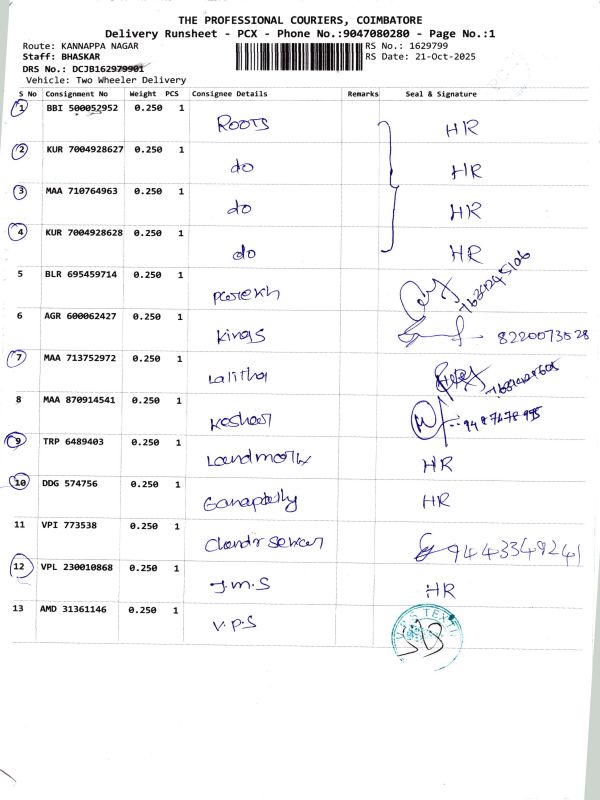 THE PROFESSIONAL COURIERS, COIMBATORE
Delivery Runsheet - PCX - Phone No.:9047080280 - Page No.:1
Route: KANNAPPA NAGAR RS No.: 1629799
Staff: BHASKAR RS Date: 21-Oct-2025
DRS No.: DCJB162979901
Vehicle: Two Wheeler Delivery
S No Consignment No Weight PCS Consignee Details Remarks Seal & Signature
1 BBI 500052952 0.250 1 Roots HR
2 KUR 7004928627 0.250 1 do HR
3 MAA 710764963 0.250 1 do HR
4 KUR 7004928628 0.250 1 do HR
5 BLR 695459714 0.250 1 Parekh
6 AGR 600062427 0.250 1 Kings 8220073528
7 MAA 713752972 0.250 1 Lalitha
8 MAA 870914541 0.250 1
9 TRP 6489403 0.250 1 Landmark HR
10 DDG 574756 0.250 1 HR
11 VPI 773538 0.250 1 9443349241
12 VPL 230010868 0.250 1 J.M.S HR
13 AMD 31361146 0.250 1 V.P.S